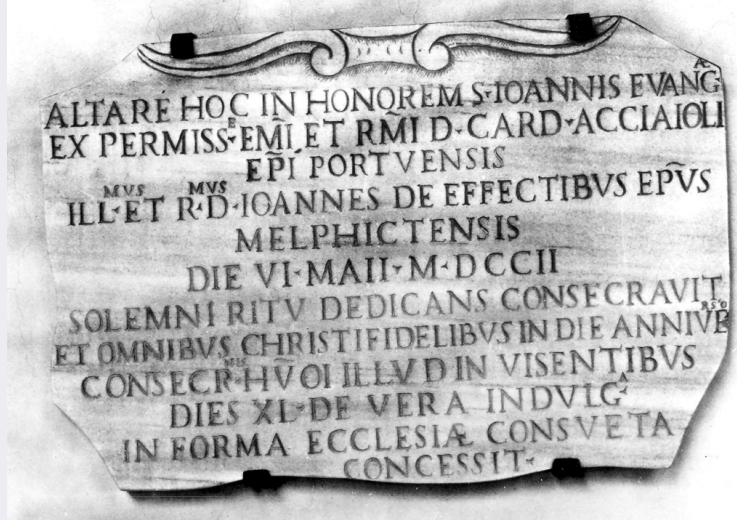 ALTARE HOC IN HONOREM S·IOANNIS EVANG Æ
EX PERMISS·E EM̃I ET RM̃I D·CARD·ACCIAIOLI
EP̃I PORTVENSIS
ILL·MVS ET R·MVS D·IOANNES DE EFFECTIBVS EPṼS
MELPHICTENSIS
DIE VI·MAII·M·DCCII
SOLEMNI RITV DEDICANS CONSECRAVIT
ET OMNIBVS CHRISTIFIDELIBVS IN DIE ANNIVERSO
CONSECR·NIS HṼOI ILLVD INVISENTIBVS
DIES XL·DE VERA INDVLGA
IN FORMA ECCLESIÆ CONSVETA
CONCESSIT·